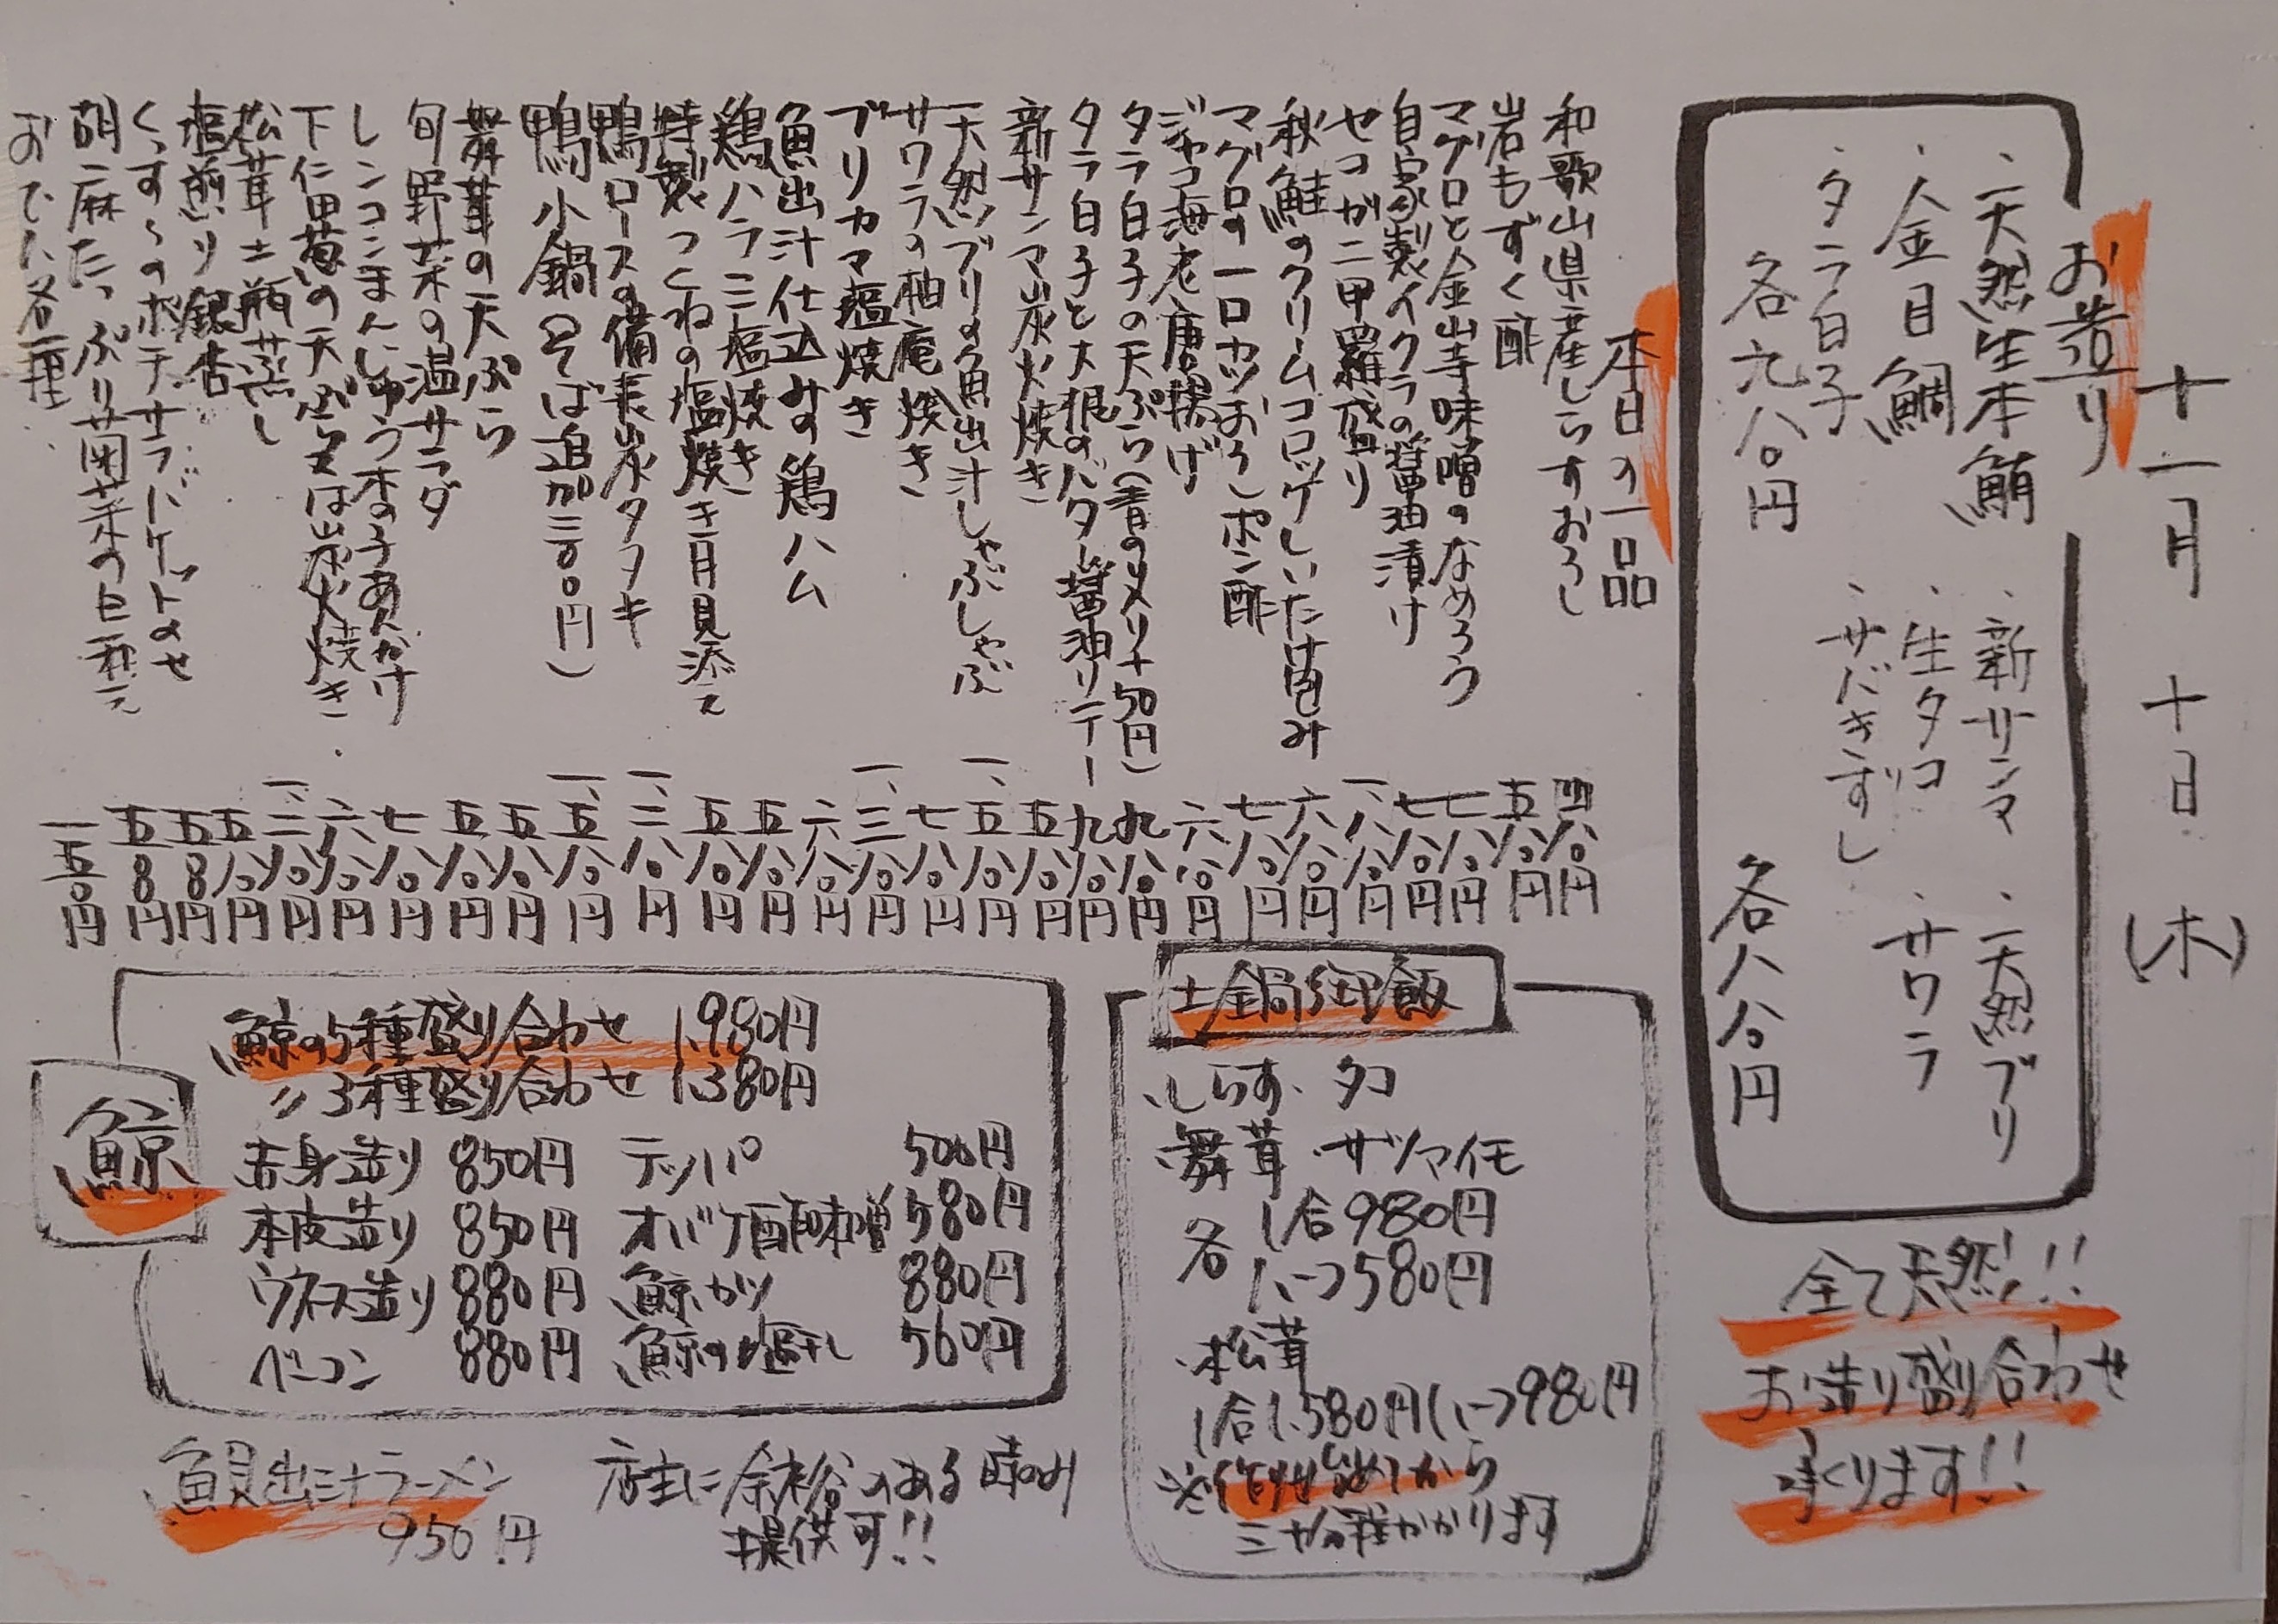 十一月十日(木)
お造り
・天然生本鮪 ・新サンマ ・天然ブリ
・金目鯛 ・生タコ ・サワラ
・タラ白子 ・サバきずし
各九八〇円 各八八〇円
全て天然!!
お造り盛り合わせ
承くります!!
本日の一品
和歌山県産しらすおろし 四八〇円
岩もずく酢 五八〇円
マグロと金山寺味噌のなめろう 七八〇円
自家製イクラの醤油漬け 七八〇円
セコガニ甲羅盛り 一、八八〇円
秋鮭のクリームコロッケしいたけ包み 六八〇円
マグロの一口カツおろしポン酢 七八〇円
ジャコ海老唐揚げ 六八〇円
タラ白子の天ぷら(青のり入り+50円) 九八〇円
タラ白子と大根のバター醤油ソテー 九八〇円
新サンマ炭火焼き 五八〇円
天然ブリの魚出汁しゃぶしゃぶ 一、五八〇円
サワラの柚庵焼き 七八〇円
ブリカマ塩焼き 一、三八〇円
魚出汁仕込みの鶏ハム 六八〇円
鶏ハラミ塩焼き 五八〇円
特製つくねの塩焼き月見添え 五八〇円
鴨ロースの備長炭タタキ 一、二八〇円
鴨小鍋(そば追加三〇〇円) 一、五八〇円
舞茸の天ぷら 五八〇円
旬野菜の温サラダ 五八〇円
レンコンまんじゅう木の子あんかけ 七八〇円
下仁田葱の天ぷら又は炭火焼き 六八〇円
松茸土瓶蒸し 一、二八〇円
塩煎り銀杏 五八〇円
くんすーのポテサラバケットのせ 五八〇円
胡麻たっぷり菊菜の白和え 五八〇円
おでん各種 一五〇円
土鍋御飯
・しらす・タコ
・舞茸・サツマイモ
各 1合980円
1/2 580円
・松茸
1合1.580円 1/2 980円
※作り始めてから
三十分程かかります
鯨
鯨の5種盛り合わせ 1.980円
〃 3種盛り合わせ 1.380円
赤身造り 850円 テッパ 500円
本皮造り 850円 オバケ酢味噌 580円
ウネス造り 880円 鯨カツ 880円
ベーコン 880円 鯨の塩干し 560円
魚貝出汁ラーメン
950円
店主に余裕のある時のみ
提供可!!